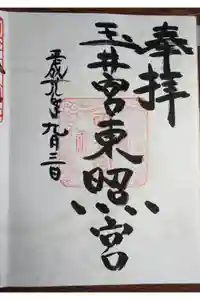 奉拝
玉井宮東照宮
平成九年九月三日